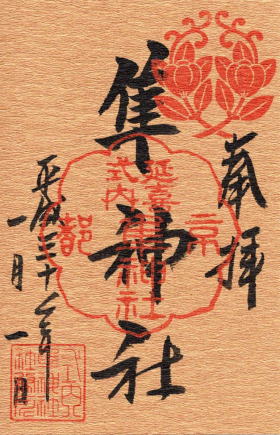 奉拝
隼神社
平成三十一年
一月一日
京都
延喜
式内
隼神社